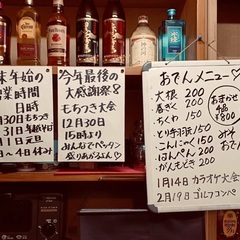 末年始の
営業時間
日時
30日もちつき
31日年越そば
1日元旦
〜4日休み
今年最後の
大感謝祭
もちつき大会
12月30日
15時より
みんなでペッタン
盛りあがるよん♡
おでんメニュー♡
大根 200
巻ぎく 200
ちくわ 150
とり手羽元 150
こんにゃく 150
はんぺん 200
がんもどき 200
おまかせ
4品
¥800
みそ
おでん
1月14日 カラオケ大会
2月19日 ゴルフコンペ